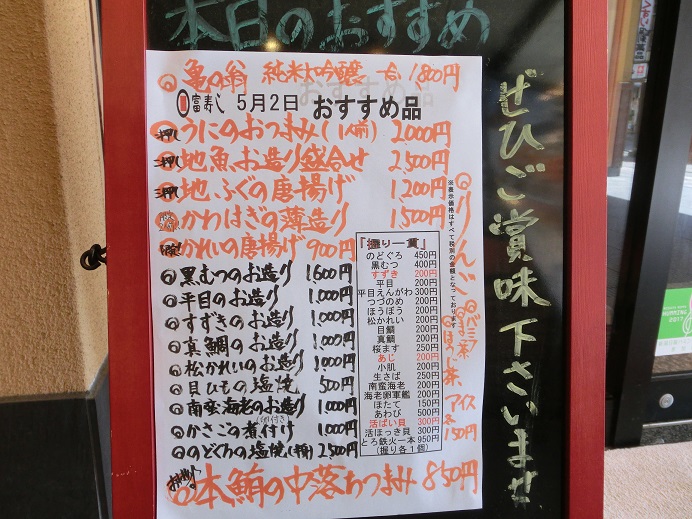 本日のおすすめ
亀の翁 純米大吟醸 一合 1800円
富寿し 5月2日 おすすめ品
一押し うにのおつまみ(1人前) 2,000円
二押し 地魚お造り盛合せ 2,500円
三押し 地ふぐの唐揚げ 1,200円
かわはぎの薄造り 1,500円
かれいの唐揚げ 900円
黒むつのお造り 1,600円
平目のお造り 1,000円
すずきのお造り 1,000円
真鯛のお造り 1,000円
松かれいのお造り 1,000円
貝ひもの塩焼 500円
南蛮海老のお造り 1,000円
かさごの煮付け 1,000円
のどぐろの塩焼(特) 2,500円
本鮪の中落ちつまみ 850円
『握り一貫』
のどぐろ 450円
黒むつ 400円
すずき 200円
平目 200円
平目えんがわ 300円
つづのめ 200円
ほうぼう 200円
松かれい 200円
目鯛 200円
真鯛 200円
桜ます 250円
あじ 200円
小肌 200円
生さば 250円
南蛮海老 200円
海老卵軍艦 200円
ほたて 150円
あわび 500円
活ばい貝 300円
活ほっき貝 300円
とろ鉄火一本 950円
(握り各1個)
※表示価格はすべて税別の金額となっております
りんご
バニラ
ほうじ茶
アイス
各150円
ぜひご賞味下さいませ